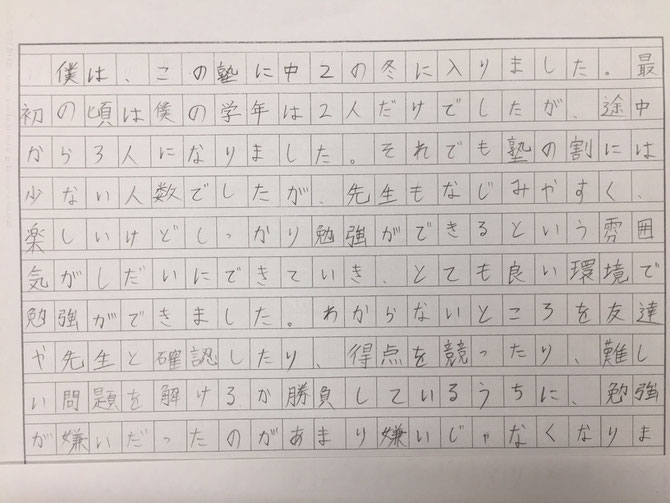 僕は、この塾に中２の冬に入りました。最
初の頃は僕の学年は２人だけでしたが、途中
から３人になりました。それでも塾の割には
少ない人数でしたが、先生もなじみやすく、
楽しいけどしっかり勉強ができるという雰囲
気がしだいにできていき、とても良い環境で
勉強ができました。わからないところを友達
や先生と確認したり、得点を競ったり、難し
い問題を解けるか勝負しているうちに、勉強
が嫌いだったのがあまり嫌いじゃなくなりま